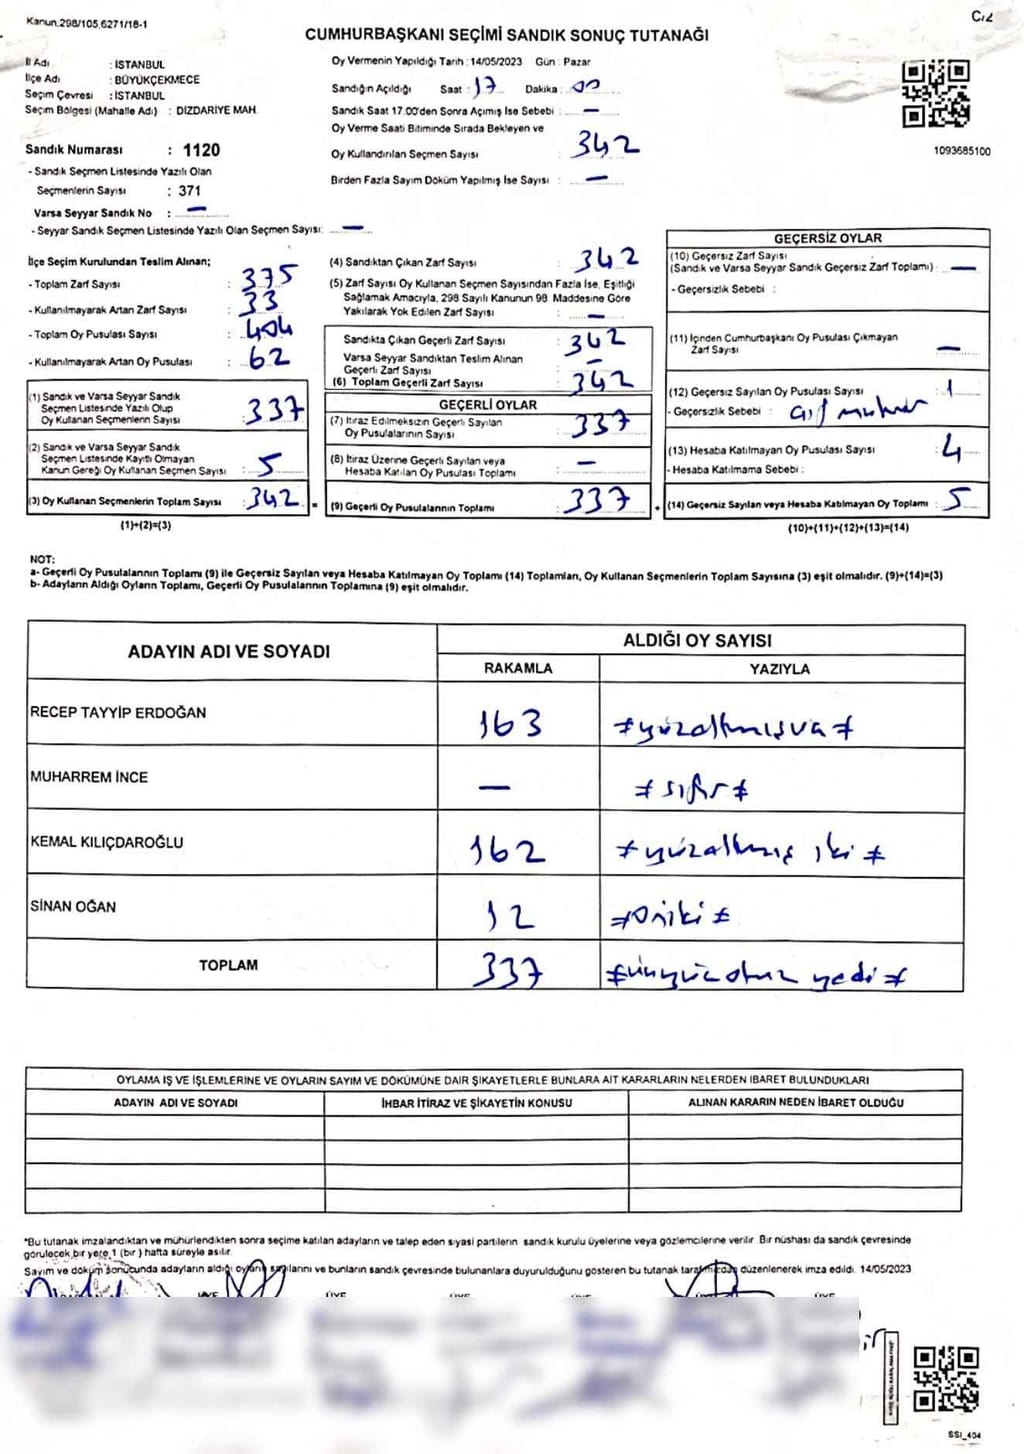 Kanun,298/105,6271/18-1
C/2
CUMHURBAŞKANI SEÇİMİ SANDIK SONUÇ TUTANAĞI
İl Adı : İSTANBUL
İlçe Adı : BÜYÜKÇEKMECE
Seçim Çevresi : İSTANBUL
Seçim Bölgesi (Mahalle Adı) : DİZDARİYE MAH.
Sandık Numarası : 1120
- Sandık Seçmen Listesinde Yazılı Olan
Seçmenlerin Sayısı : 371
Varsa Seyyar Sandık No : —
- Seyyar Sandık Seçmen Listesinde Yazılı Olan Seçmen Sayısı: —
Oy Vermenin Yapıldığı Tarih : 14/05/2023 Gün : Pazar
Sandığın Açıldığı Saat : 17 Dakika : 00
Sandık Saat 17.00'den Sonra Açımış İse Sebebi : —
Oy Verme Saati Bitiminde Sırada Bekleyen ve
Oy Kullandırılan Seçmen Sayısı : 342
Birden Fazla Sayım Döküm Yapılmış İse Sayısı : —
1093685100
İlçe Seçim Kurulundan Teslim Alınan;
- Toplam Zarf Sayısı : 375
- Kullanılmayarak Artan Zarf Sayısı : 33
- Toplam Oy Pusulası Sayısı : 404
- Kullanılmayarak Artan Oy Pusulası : 62
(1) Sandık ve Varsa Seyyar Sandık
Seçmen Listesinde Yazılı Olup
Oy Kullanan Seçmenlerin Sayısı : 337
(2) Sandık ve Varsa Seyyar Sandık
Seçmen Listesinde Kayıtlı Olmayan
Kanun Gereği Oy Kullanan Seçmen Sayısı : 5
(3) Oy Kullanan Seçmenlerin Toplam Sayısı : 342
(1)+(2)=(3)
(4) Sandıktan Çıkan Zarf Sayısı : 342
(5) Zarf Sayısı Oy Kullanan Seçmen Sayısından Fazla İse, Eşitliği
Sağlamak Amacıyla, 298 Sayılı Kanunun 98. Maddesine Göre
Yakılarak Yok Edilen Zarf Sayısı : —
Sandıkta Çıkan Geçerli Zarf Sayısı : 342
Varsa Seyyar Sandıktan Teslim Alınan
Geçerli Zarf Sayısı : —
(6) Toplam Geçerli Zarf Sayısı : 342
GEÇERLİ OYLAR
(7) İtiraz Edilmeksizin Geçerli Sayılan
Oy Pusulalarının Sayısı : 337
(8) İtiraz Üzerine Geçerli Sayılan veya
Hesaba Katılan Oy Pusulası Toplamı : —
= (9) Geçerli Oy Pusulalarının Toplamı : 337
GEÇERSİZ OYLAR
(10) Geçersiz Zarf Sayısı
(Sandık ve Varsa Seyyar Sandık Geçersiz Zarf Toplamı) : —
- Geçersizlik Sebebi :
(11) İçinden Cumhurbaşkanı Oy Pusulası Çıkmayan
Zarf Sayısı : —
(12) Geçersiz Sayılan Oy Pusulası Sayısı : 1
- Geçersizlik Sebebi : çift mühür
(13) Hesaba Katılmayan Oy Pusulası Sayısı : 4
- Hesaba Katılmama Sebebi :
+ (14) Geçersiz Sayılan veya Hesaba Katılmayan Oy Toplamı : 5
(10)+(11)+(12)+(13)=(14)
NOT:
a- Geçerli Oy Pusulalarının Toplamı (9) ile Geçersiz Sayılan veya Hesaba Katılmayan Oy Toplamı (14) Toplamları, Oy Kullanan Seçmenlerin Toplam Sayısına (3) eşit olmalıdır. (9)+(14)=(3)
b- Adayların Aldığı Oyların Toplamı, Geçerli Oy Pusulalarının Toplamına (9) eşit olmalıdır.
ADAYIN ADI VE SOYADI ALDIĞI OY SAYISI
RAKAMLA YAZIYLA
RECEP TAYYİP ERDOĞAN 163 #yüzaltmışüç#
MUHARREM İNCE — #sıfır#
KEMAL KILIÇDAROĞLU 162 #yüzaltmış iki#
SİNAN OĞAN 12 #oniki#
TOPLAM 337 #üçyüz otuz yedi#
OYLAMA İŞ VE İŞLEMLERİNE VE OYLARIN SAYIM VE DÖKÜMÜNE DAİR ŞİKAYETLERLE BUNLARA AİT KARARLARIN NELERDEN İBARET BULUNDUKLARI
ADAYIN ADI VE SOYADI İHBAR İTİRAZ VE ŞİKAYETİN KONUSU ALINAN KARARIN NEDEN İBARET OLDUĞU
*Bu tutanak imzalandıktan ve mühürlendikten sonra seçime katılan adayların ve talep eden siyasi partilerin sandık kurulu üyelerine veya gözlemcilerine verilir. Bir nüshası da sandık çevresinde
görülecek bir yere 1 (bir ) hafta süreyle asılır.
Sayım ve döküm sonucunda adayların aldığı oyların sayılarını ve bunların sandık çevresinde bulunanlara duyurulduğunu gösteren bu tutanak tarafımızdan düzenlenerek imza edildi. 14/05/2023
ÜYE ÜYE ÜYE ÜYE
SSI_404